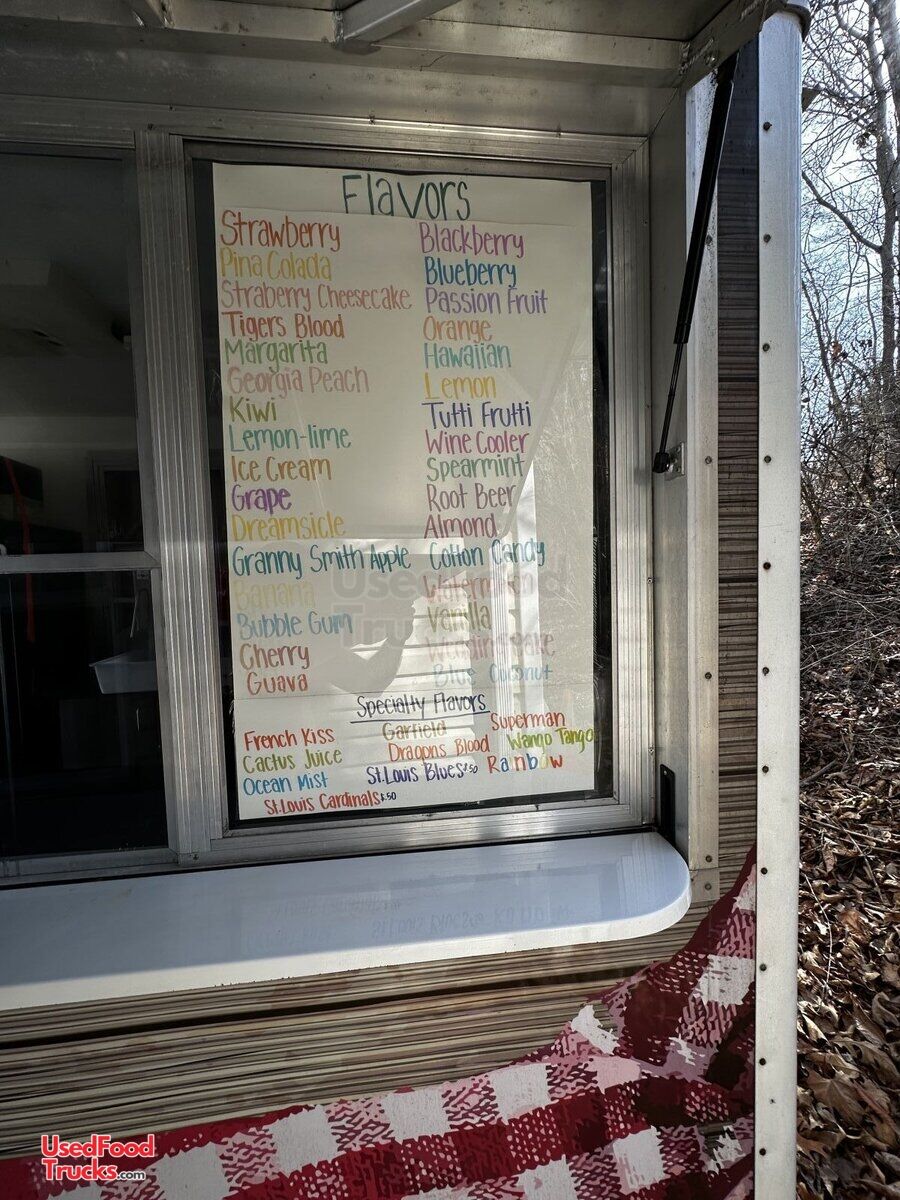 Flavors
Strawberry
Pina Colada
Straberry Cheesecake
Tigers Blood
Margarita
Georgia Peach
Kiwi
Lemon-lime
Ice Cream
Grape
Dreamsicle
Granny Smith Apple
Banana
Bubble Gum
Cherry
Guava
Blackberry
Blueberry
Passion Fruit
Orange
Hawaiian
Lemon
Tutti Frutti
Wine Cooler
Spearmint
Root Beer
Almond
Cotton Candy
Watermelon
Vanilla
Wedding Cake
Blue Coconut
Specialty Flavors
French Kiss
Cactus Juice
Ocean Mist
St.Louis Cardinals $.50
Garfield
Dragons Blood
St.Louis Blues $.50
Superman
Wango Tango
Rainbow
Used Food
UsedFood
Trucks.com